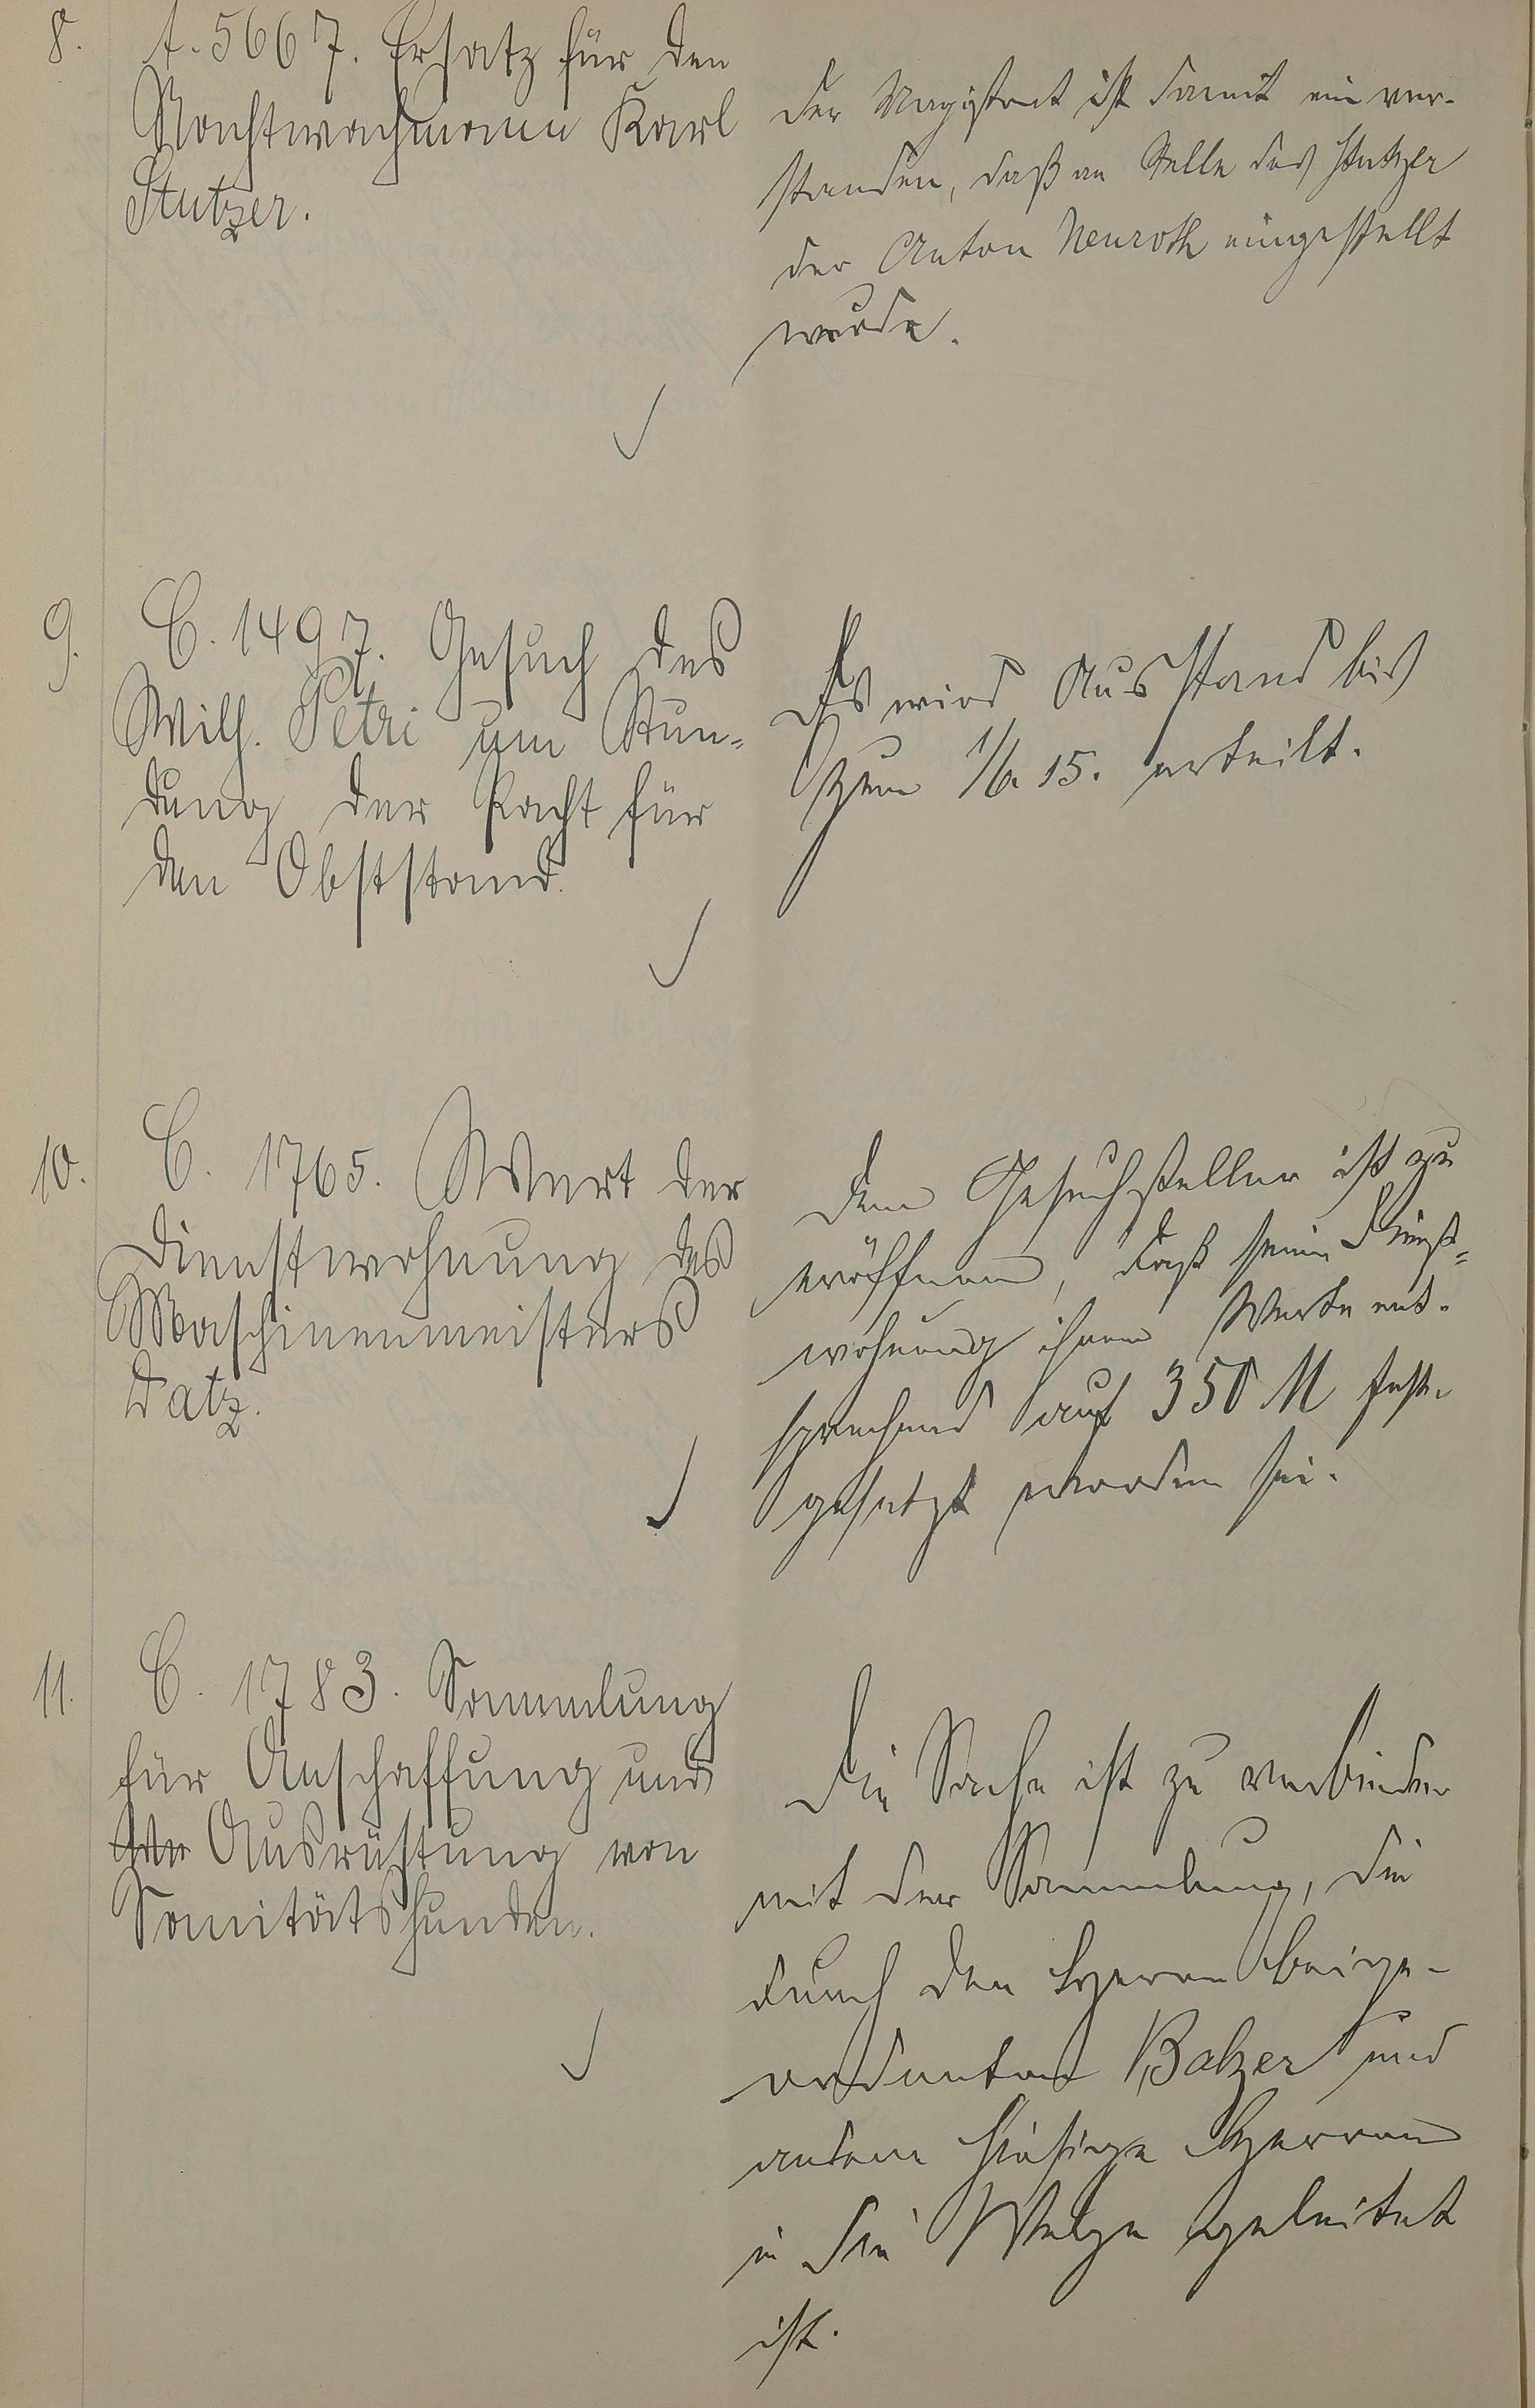 8. A. 5667. Ersatz für den
Nachtwachmann Karl
Stutzer.
Der Magistrat ist damit einver-
standen, daß an Stelle des Stutzer
der Anton Neuroth eingestellt
wurde.
9. C. 1497. Gesuch des
Wilh. Petri um Stun-
dung der Pacht für
den Obststand.
Es wird Ausstand bis
zum 15. erteilt.
10. C. 1765. Wert der
Dienstwohnung des
Maschinenmeisters
Datz.
Dem Gesuchsteller ist zu
eröffnen, daß seine Dienst-
wohnung ihrem Werte ent-
sprechend auf 350 M fest-
gesetzt worden sei.
11. C. 1783. Sammlung
für Anschaffung und
Ausrüstung von
Sanitätshunden.
Die Sache ist zu verbinden
mit der Sammlung, die
durch den Herrn Beige-
ordneten Balzer und
andere hiesige Herren
in die Wege geleitet
ist.